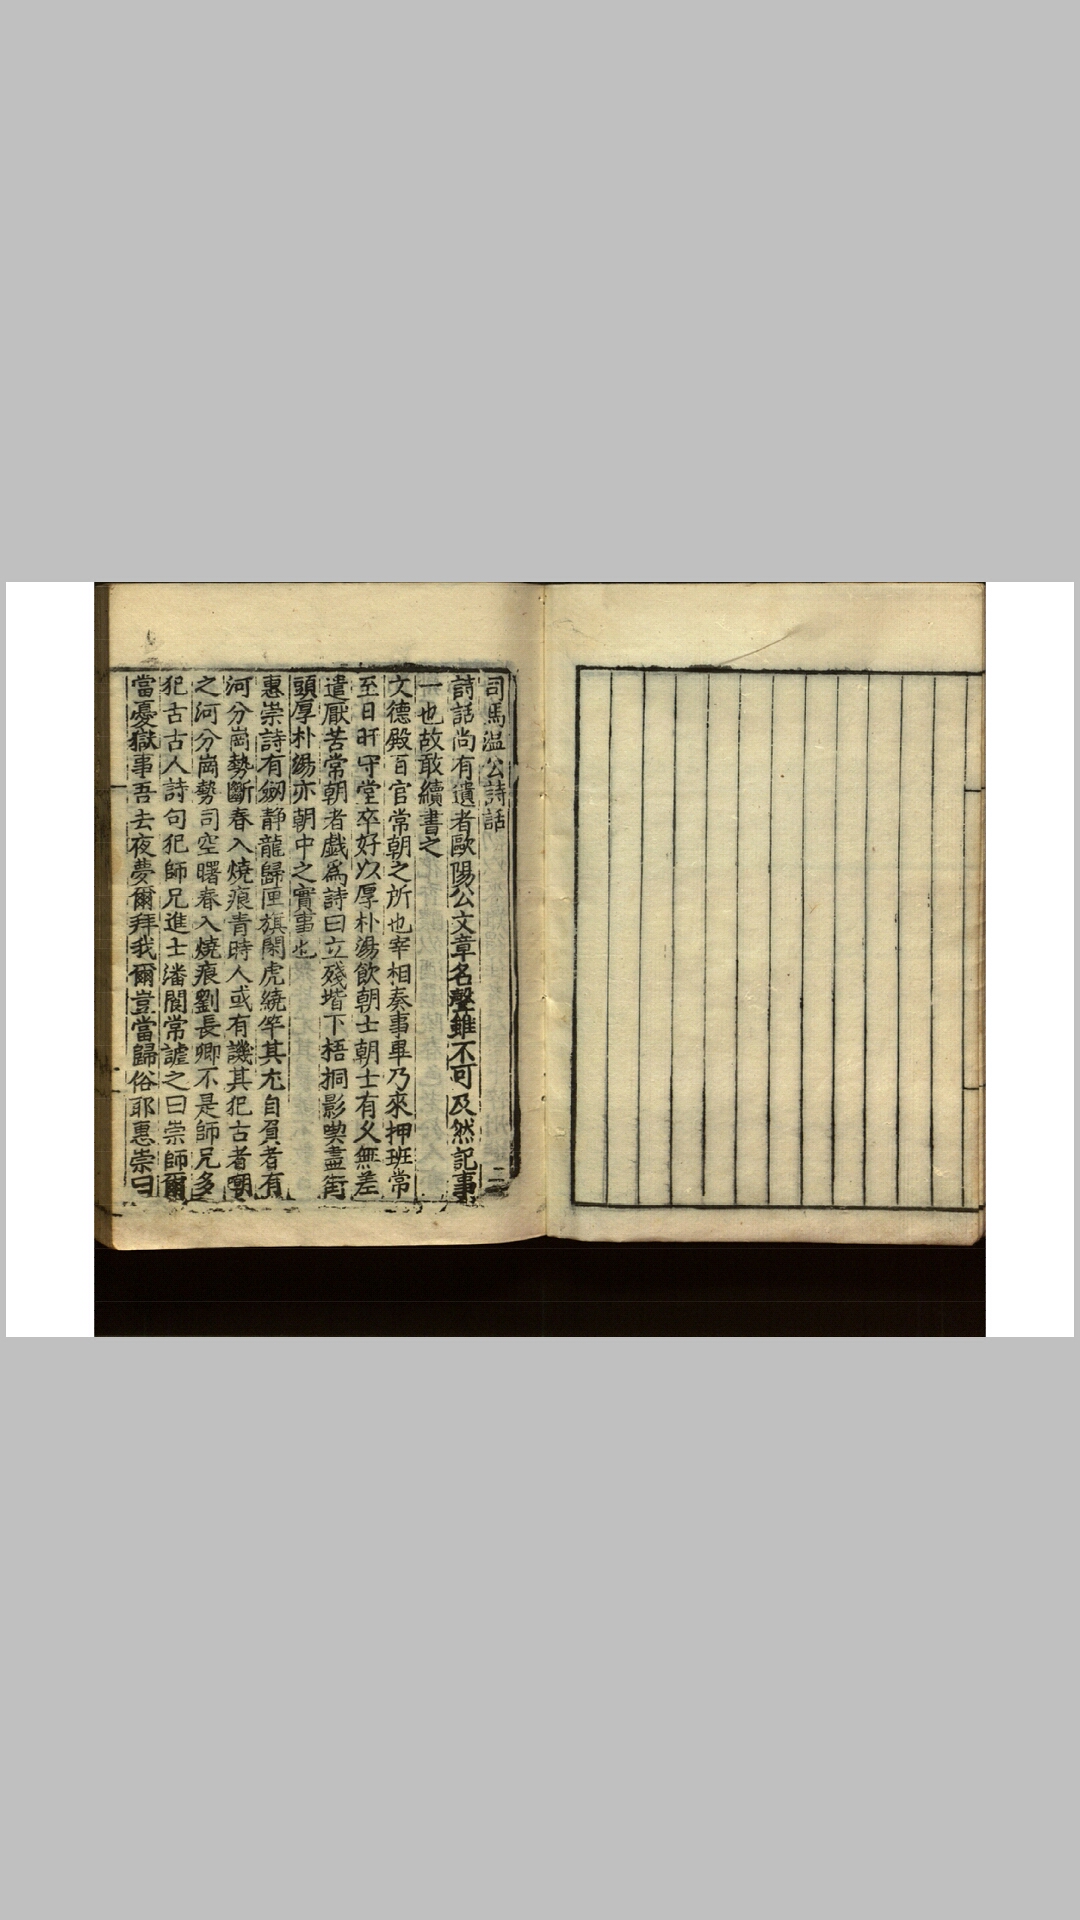 司馬温公詩話
詩話尚有遺者歐陽公文章名聲雖不可及然記事
一也故敢續書之
文德殿百官常朝之所也宰相奏事畢乃來押班常
至日旰守堂卒好以厚朴湯飲朝士朝士有久無差
遣厭苦常朝者戯爲詩曰立殘堦下梧桐影喫盡街
頭厚朴湯亦朝中之實事也
惠崇詩有劒静龍歸匣旗閑虎繞竿其尤自負者有
河分崗勢斷春入燒痕青時人或有譏其犯古者嘲
之河分崗勢司空曙春入燒痕劉長卿不是師兄多
犯古古人詩句犯師兄進士潘閬常謔之曰崇師爾
當憂獄事吾去夜夢爾拜我爾豈當歸俗耶惠崇曰
二